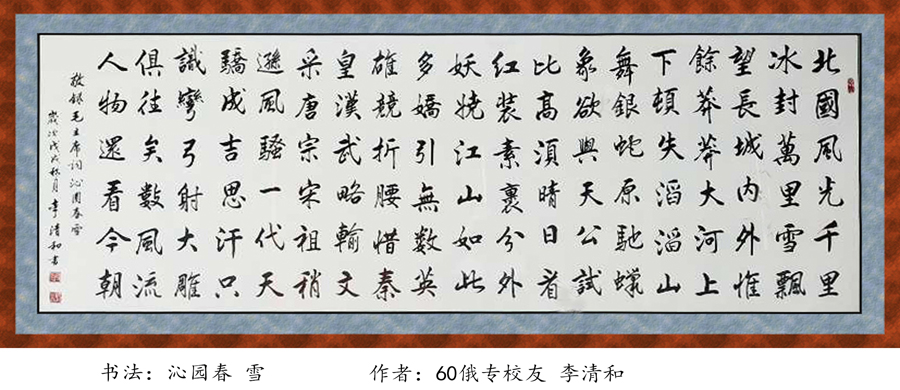 北國風光千里
冰封萬里雪飄
望長城内外惟
餘莽莽大河上
下頓失滔滔山
舞銀蛇原馳蠟
象欲與天公試
比高須晴日看
紅裝素裹分外
妖嬈江山如此
多嬌引無数英
雄競折腰惜秦
皇漢武略輸文
采唐宗宋祖稍
遜風騷一代天
驕成吉思汗只
識彎弓射大雕
俱往矣數風流
人物還看今朝
敬録毛主席詞沁園春雪
歲次戊戌秋月李清和書
书法：沁园春 雪
作者：60俄专校友 李清和